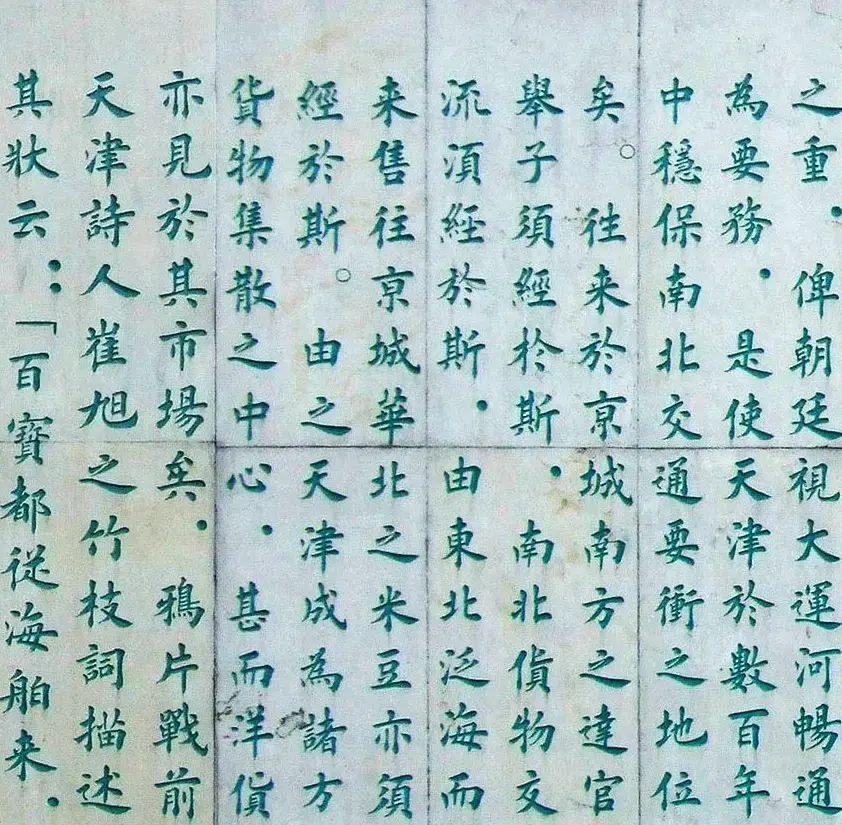 之重．俾朝廷視大運河暢通
為要務．是使天津於數百年
中穩保南北交通要衝之地位
矣。往来於京城南方之達官
舉子須經於斯．南北貨物交
流須經於斯．由東北泛海而
来售往京城華北之米豆亦須
經於斯。由之天津成為諸方
貨物集散之中心．甚而洋貨
亦見於其市場矣．鴉片戰前
天津詩人崔旭之竹枝詞描述
其狀云：「百寶都從海舶来．